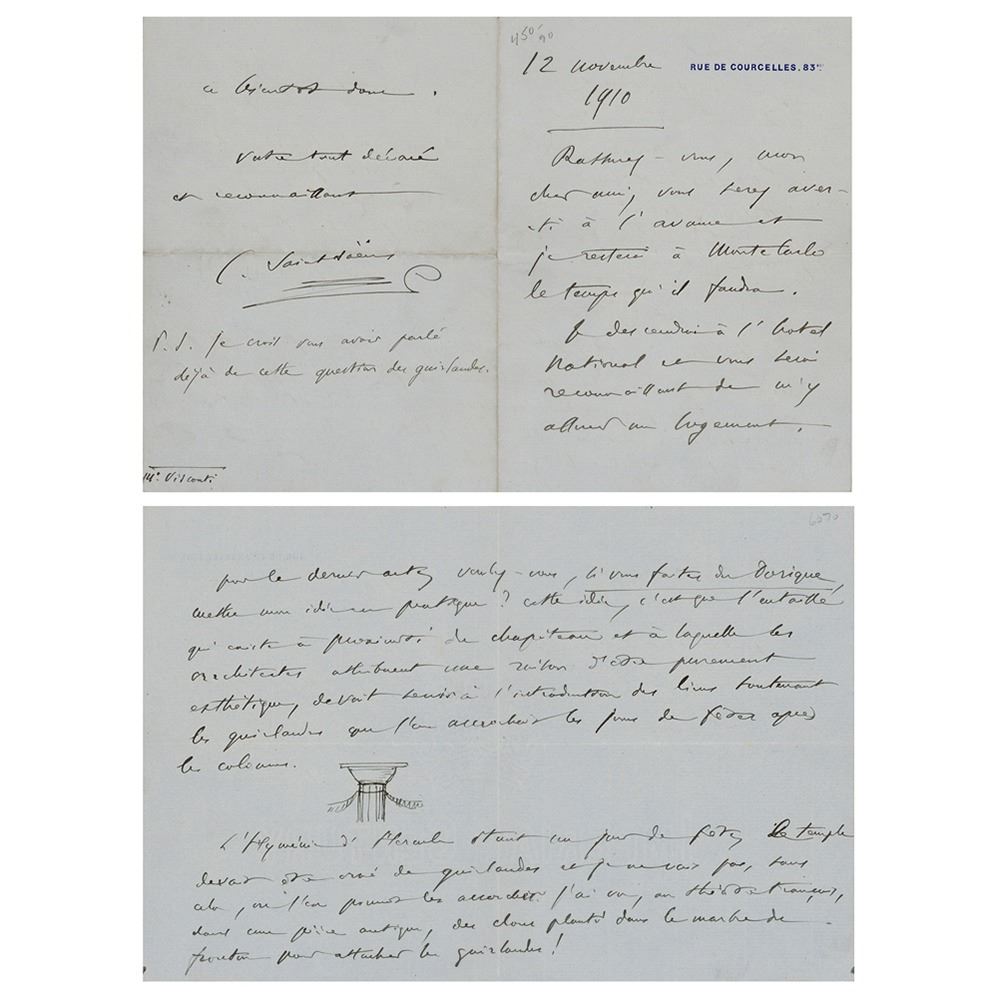 12 novembre
RUE DE COURCELLES, 83
1910
Rassurez-vous, mon
cher ami, vous serez aver-
ti à l'avance et
je resterai à Monte Carlo
le temps qu'il faudra.
Je descendrai à l'hotel
National et vous serai
reconnaissant de m'y
assurer un logement.
pour le dernier acte, voulez-vous, si vous faites du Dorique,
mettre mon idée en pratique? cette idée, c'est que l'entaille
qui existe à proximité du chapiteau et à laquelle les
architectes attribuent une raison d'être purement
esthétique, devait servir à l'introduction des liens soutenant
les guirlandes que l'on accrochait les jours de fêtes après
les colonnes.
L'Hyménée d'Hercule étant un jour de fête, le temple
devait être orné de guirlandes et je ne vois pas, sans
cela, où l'on pourrait les accrocher. J'ai vu, au théâtre français,
dans une pièce antique, des clous plantés dans le marbre du
fronton pour attacher les guirlandes!
a bientot donc.
Votre tout dévoué
et reconnaissant
C. Saint-Saëns
P.S. je crois vous avoir parlé
déjà de cette question des guirlandes.
Mr. Visconti